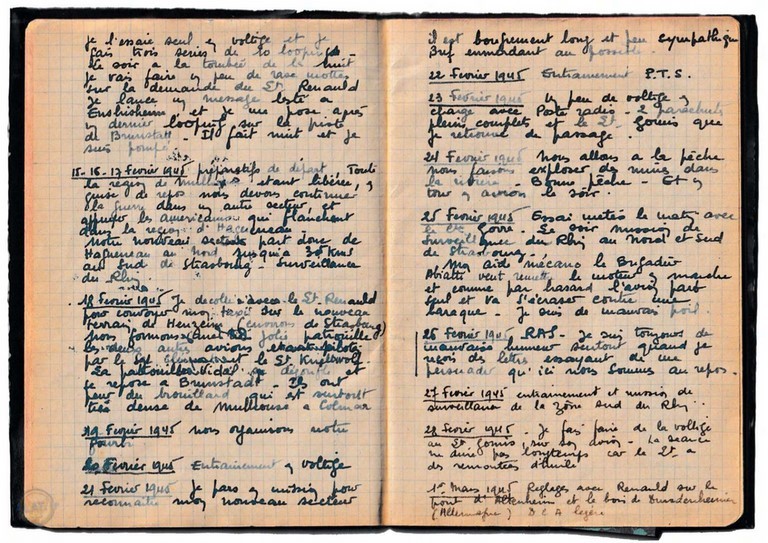 je l'essaie seul en voltige et je
fais trois series de 10 loopings -
Le soir a la tombée de la nuit
je vais faire un peu de rase mottes
sur la demande du Lt. Renauld
Je lance un message lesté a
Ensisheim et je me pose après
un dernier looping sur la piste
de Brunstatt - Il fait nuit et je
suis pompé
15-16-17 Fevrier 1945 préparatifs de départ. Toute
la region de Mulhouse etant libérée, en
guise de repos nous devons continuer
la guerre dans un autre secteur et
appuyer les américains qui flanchent
dans la region d'Haguenau.
Notre nouveau secteur part donc de
Haguenau au nord jusqu'a 30 Kms
au Sud de Strasbourg - Surveillance
du Rhin
18 Fevrier 1945 Je decolle avec le Lt. Renauld
pour convoyer mon taxi sur le nouveau
terrain de Henzheim (environs de Strasbourg)
Nous formons une jolie patrouille
les deux autres avions etant pilotés
par le Lt.
La patrouille Vidal se dégonfle et
se repose a Brunstadt - Ils ont
peur du brouillard qui est surtout
très dense de Mulhouse a Colmar
19 Fevrier 1945 nous organisons notre
fourbi
20 Fevrier 1945 Entrainement en voltige
21 Fevrier 1945 Je pars en mission pour
reconnaitre mon nouveau secteur
il est bougrement long et peu sympathique
Bref emmerdant au possible.
22 Fevrier 1945 Entrainement P.T.S.
23 Fevrier 1945 Un peu de voltige en
charge avec Poste radio - 2 parachutes
pleins complets et le Lt. Gomis que
je retourne de passage.
24 Fevrier 1945 Nous allons a la pêche
nous faisons exploser des mines dans
la riviere - Bonne pêche - Et un
tour en avion le soir.
25 Fevrier 1945 Essai meteo le matin avec
le Lt. Gorre. Le soir mission de
Surveillance du Rhin au Nord et Sud
de Strasbourg
Mon aide mécano le Brigadier
Abiatti veut remettre le moteur en marche
et comme par hasard l'avion part
seul et va s'écraser contre une
baraque - Je suis de mauvais poil.
26 Fevrier 1945 - RAS - Je suis toujours de
mauvaise humeur surtout quand je
reçois des lettres essayant de me
persuader qu'ici nous sommes au repos.
27 Fevrier 1945 entrainement et mission de
surveillance de la zone Sud du Rhin.
28 Fevrier 1945 - Je fais faire de la voltige
au Lt Gomis, sur son avion - La seance
ne dure pas longtemps car le Lt. a
des remontées d'huile
1er Mars 1945 Reglages avec Renauld sur le
pont d'Altenheim et le bois de
(Allemagne) D C A legère